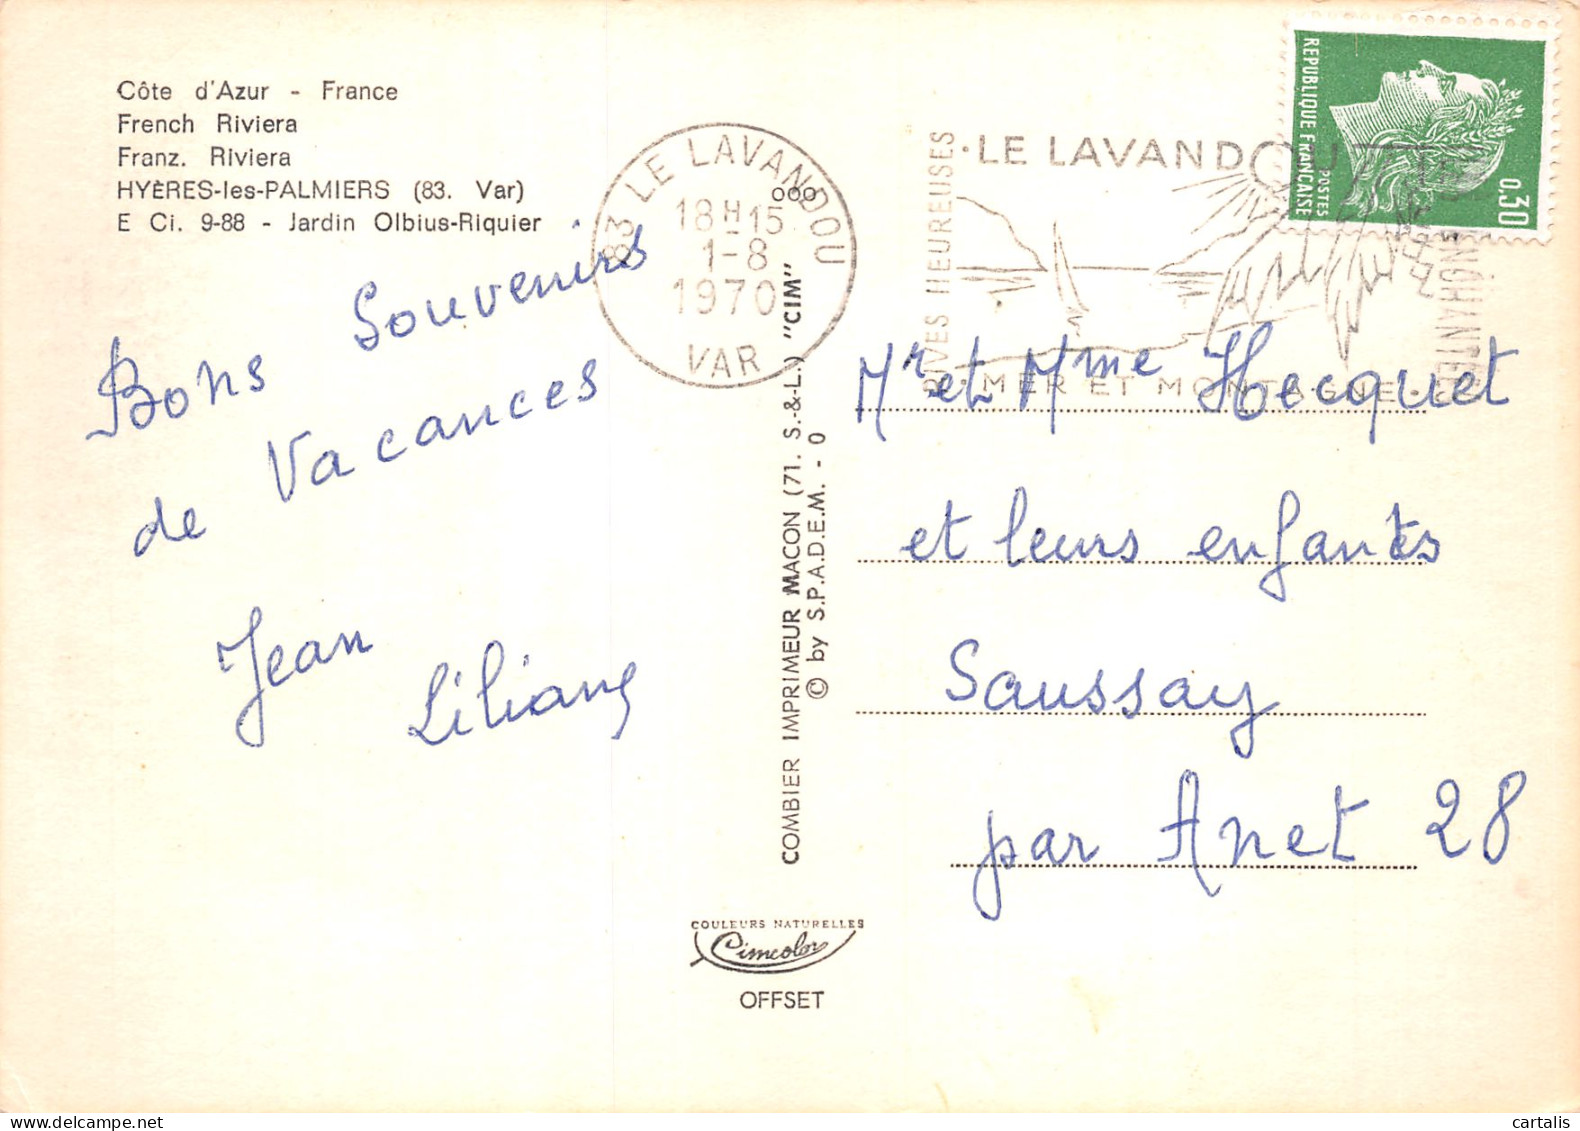 Côte d'Azur - France
French Riviera
Franz. Riviera
HYÈRES-les-PALMIERS (83. Var)
E Ci. 9-88 - Jardin Olbius-Riquier
Bons Souvenirs
de Vacances
Jean
Liliane
83 LE LAVANDOU
18H15
1-8
1970
VAR
ooo
COMBIER IMPRIMEUR MACON (71. S.&-L.) "CIM"
© by S.P.A.D.E.M. - 0
COULEURS NATURELLES
Cimcolor
OFFSET
RIVES HEUREUSES
·LE LAVANDOU
MER ET MONTAGNE
REPUBLIQUE FRANCAISE
POSTES
0,30
Mr et Mme Hecquet
et leurs enfants
Saussay
par Anet 28
cartalis